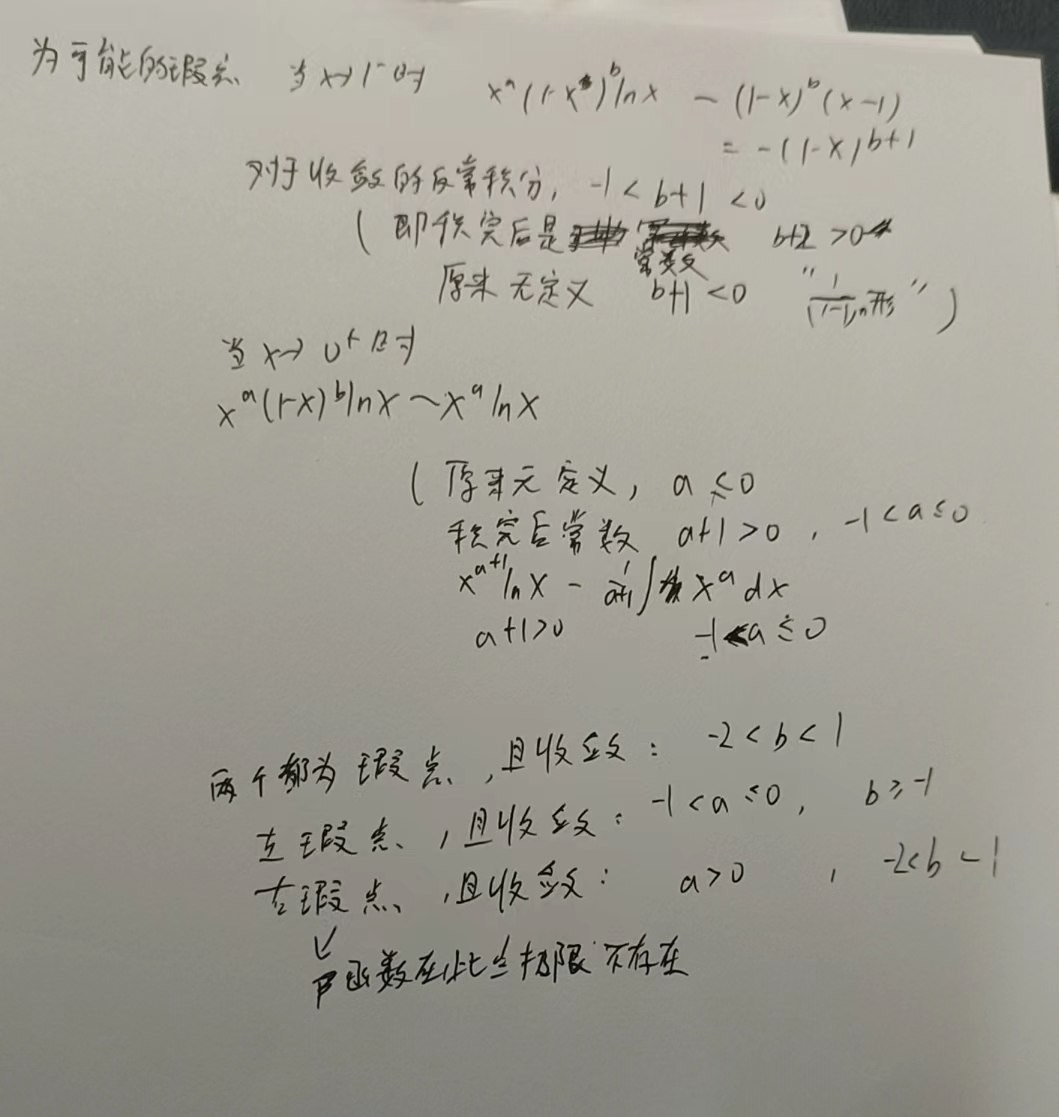 为可能的瑕点 当x→1⁻时 xᵃ(1-x)ᵇlnx ~ (1-x)ᵇ(x-1)
= -(1-x)ᵇ⁺¹
对于收敛的反常积分, -1 < b+1 < 0
( 即积完后是常数 b+2 >0
原来无定义 b+1 <0 " 形 " )
当 x→ 0⁺时
xᵃ(1-x)ᵇlnx ~ xᵃ lnx
( 原来无定义, a ≤ 0
积完后常数 a+1 >0 , -1 < a ≤ 0
xᵃ⁺¹lnx - 1/(a+1) ∫ xᵃ dx
a+1>0 -1 < a ≤ 0
两个都为瑕点, 且收敛: -2 < b < 1
左瑕点, 且收敛: -1 < a ≤ 0, b ≥ -1
右瑕点, 且收敛: a > 0 , -2 < b - 1
函数在此点极限不存在